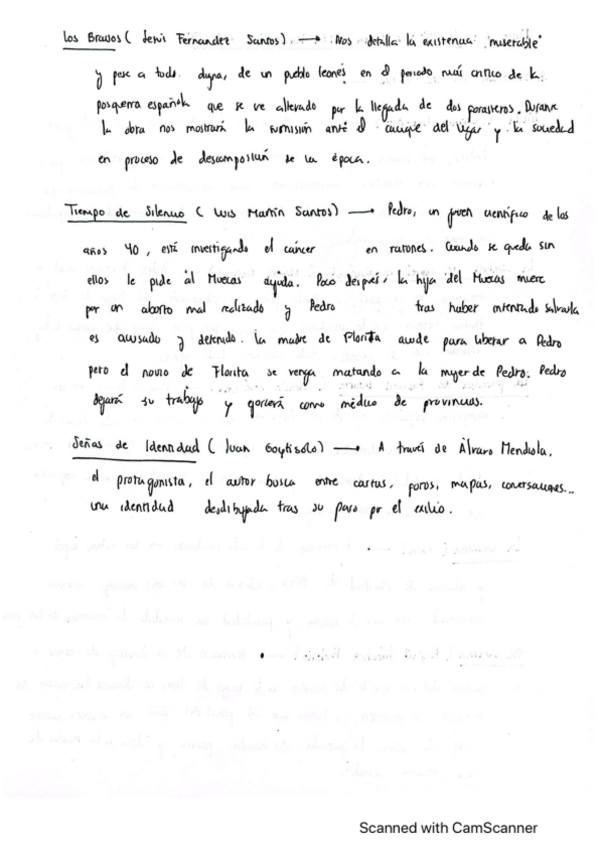 Los Bravos ( Jesús Fernandez Santos). → Nos detalla la existencia "miserable"
y pese a todo. digna, de un pueblo leonés en el periodo más crítico de la
posguerra española que se ve alterado por la llegada de dos forasteros. Durante
la obra nos mostrará la sumisión ante el cacique del lugar y la sociedad
en proceso de descomposición de la época.
Tiempo de Silencio ( Luis Martín Santos) → Pedro, un joven científico de los
años 40, está investigando el cáncer en ratones. Cuando se queda sin
ellos le pide al Muecas ayuda. Poco después, la hija del Muecas muere
por un aborto mal realizado y Pedro tras haber intentado salvarla
es acusado y detenido. La madre de Florita acude para liberar a Pedro
pero el novio de Florita se venga matando a la mujer de Pedro. Pedro
dejará su trabajo y ejercerá como médico de provincias.
Señas de Identidad ( Juan Goytisolo) → A través de Álvaro Mendiola,
el protagonista, el autor busca entre cartas, fotos, mapas, conversaciones...
una identidad desdibujada tras su paso por el exilio.
Scanned with CamScanner